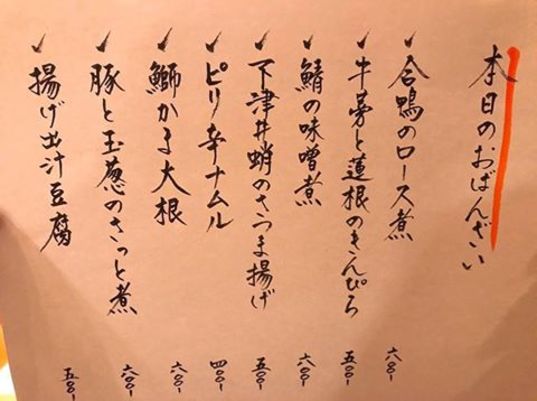 本日のおばんざい
合鴨のロース煮 六〇〇-
牛蒡と蓮根のきんぴら 五〇〇-
鯖の味噌煮 六〇〇-
下津井蛸のさつま揚げ 五〇〇-
ピリ辛ナムル 四〇〇-
鰤かま大根 六〇〇-
豚と玉葱のさっと煮 六〇〇-
揚げ出汁豆腐 五〇〇-